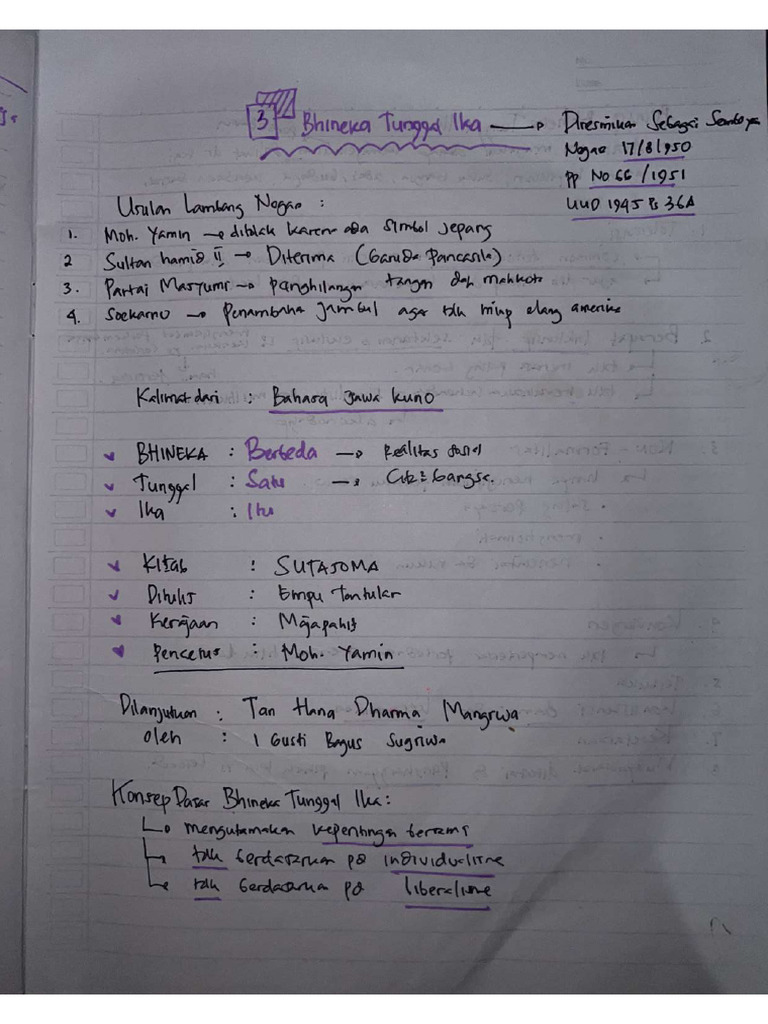 3 Bhineka Tunggal Ika → Diresmikan Sebagai Semboyan
Negara 17/8/1950
PP No 66 / 1951
UUD 1945 Ps 36A
Usulan Lambang Negara :
1. Moh. Yamin → ditolak karena ada simbol jepang
2 Sultan hamid II → Diterima (Garuda Pancasila)
3. Partai Masyumi → penghilangan tangan dan mahkota
4. Soekarno → penambahan jambul agar tdk mirip elang amerika
Kalimat dari : Bahasa jawa kuno
BHINEKA : Berbeda → Realitas sosial
Tunggal : Satu → Cita² bangsa.
Ika : Itu
Kitab : SUTASOMA
Ditulis : Empu Tantular
Kerajaan : Majapahit
Pencetus : Moh. Yamin
Dilanjutkan : Tan Hana Dharma Mangrwa
oleh : I Gusti Bagus Sugriwa
Konsep Dasar Bhineka Tunggal Ika :
mengutamakan kepentingan bersama
tdk berdasarkan pd individualisme
tdk berdasarkan pd liberalisme